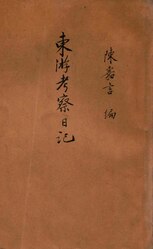 陳嘉言 編
東游考察日记